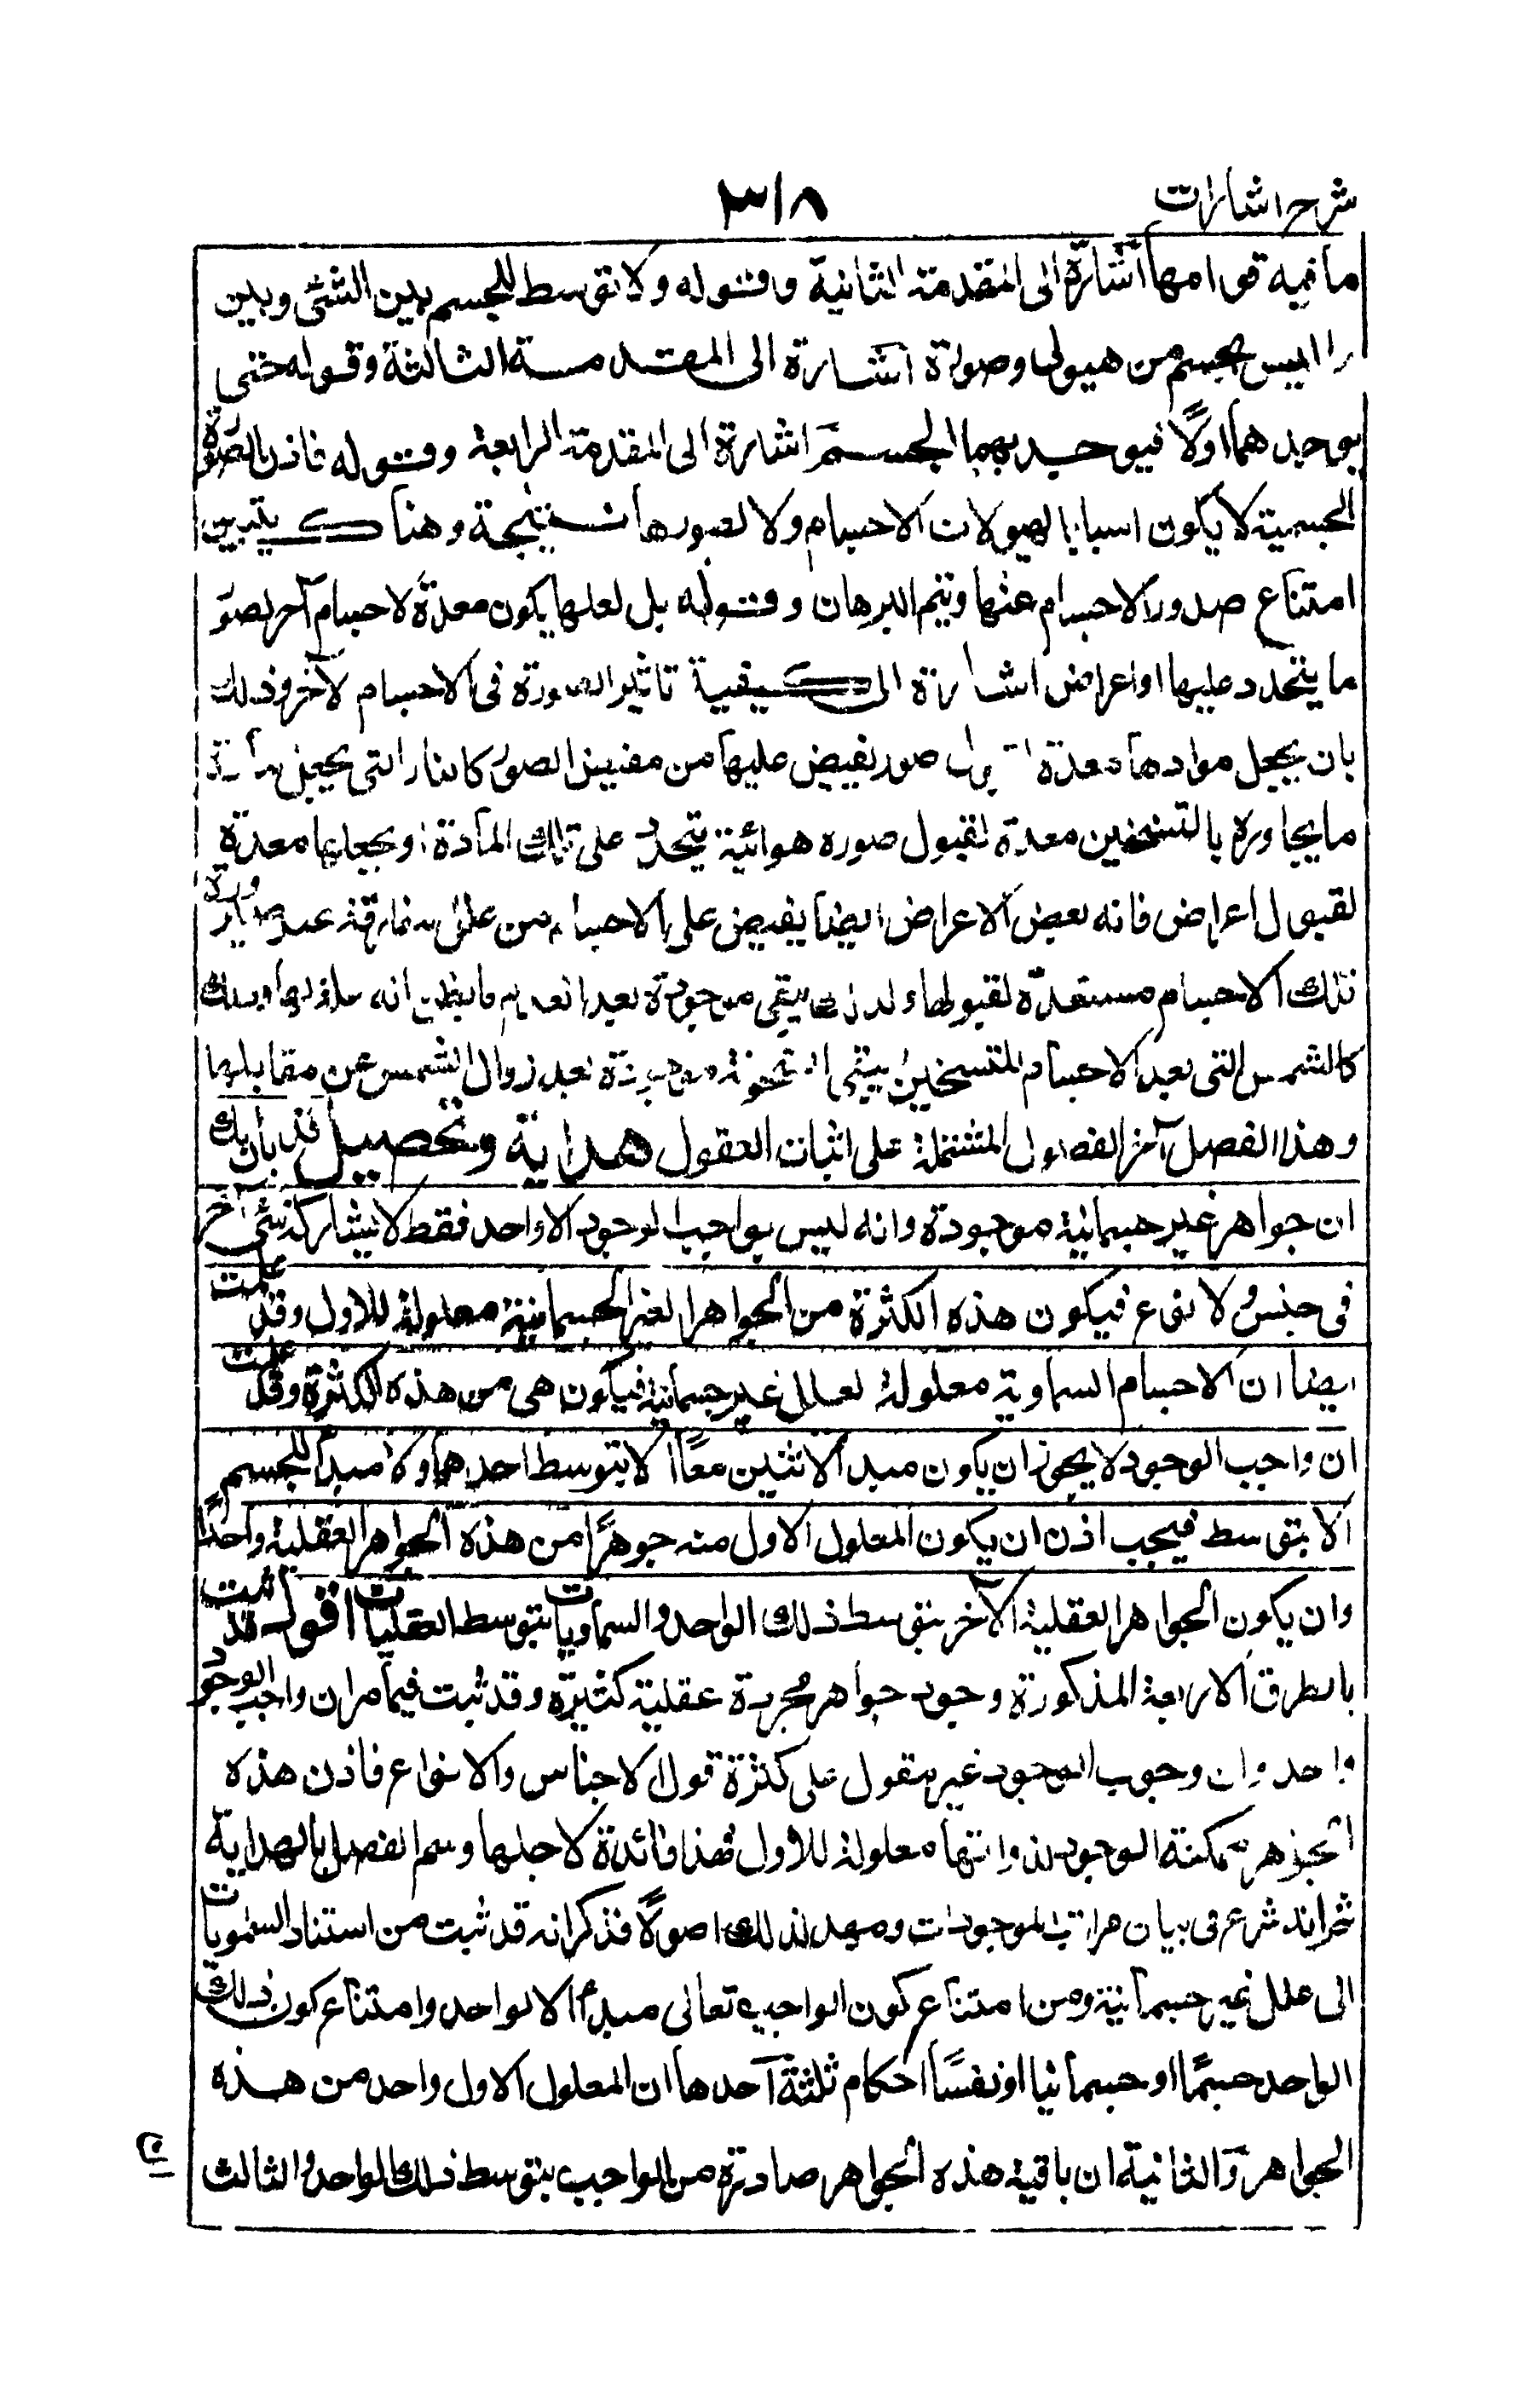 شرح اشارات
٣١٨
ما فيه قوامها اشارة الى المقدمة الثانية وقوله ولا توسط للجسم بين الشئ وبين
ما ليس بجسم من هيولى وصورة اشارة الى المقدمة الثالثة وقوله حتى
يوجدهما اولًا فيوجد بهما الجسم اشارة الى المقدمة الرابعة وقوله فاذن الصورة
الجسمية لا يكون اسبابا لهيولات الاجسام ولا لصورها نتيجة وهناك يتبين
امتناع صدور الاجسام عنها ويتم البرهان وقوله بل لعلها يكون معدة لاجسام آخر لصور
ما يتجدد عليها او اعراض اشارة الى كيفية تاثير الصورة فى الاجسام لآخر وذلك
بان يجعل موادها معدة صور يفيض عليها من مفيض الصور كالنار التى يجعل مادة
ما يجاوره بالتسخين معدة لقبول صوره هوائية يتجدد على تلك المادة او يجعلها معدة
لقبول اعراض فانه بعض الاعراض ايضا يفيض على الاجسام من علل مفارقة عند صيرورة
تلك الاجسام مستعدة لقبولها ولذلك يبقى موجودة بعد انعدام ما يظن انه علة لها وذلك
كالشمس التى يعد الاجسام للتسخين يبقى السخونة موجودة بعد زوال الشمس عن مقابلها
وهذا الفصل آخر الفصول المشتملة على اثبات العقول هداية وتحصيل قد بان لك
ان جواهر غير جسمانية موجودة وانه ليس بواجب الوجود الا واحد فقط لا يشاركه شئ آخر
فى جنس ولا نوع فيكون هذه الكثرة من الجواهر الغير الجسمانية معلولة للاول وقد علمت
ايضا ان الاجسام السماوية معلولة لعلل غير جسمانية فيكون هى من هذه الكثرة وقد علمت
ان واجب الوجود لا يجوز ان يكون مبدأ لاثنين معًا الا بتوسط احدهما ولا مبدأ للجسم
الا بتوسط فيجب اذن ان يكون المعلول الاول منه جوهرًا من هذه الجواهر العقلية واحدًا
وان يكون الجواهر العقلية الآخر بتوسط ذلك الواحد والسماويات بتوسط العقليات اقول قد ثبت
بالطرق الاربعة المذكورة وجود جواهر مجردة عقلية كثيرة وقد ثبت فيما مر ان واجب الوجود
واحد وان وجوب الوجود غير مقول على كثرة قول الاجناس والانواع فاذن هذه
الجواهر ممكنة الوجود لذواتها معلولة للاول فهذا فائدة لاجلها وسم الفصل بالهداية
ثم انه شرع فى بيان مراتب الموجودات ومهد لذلك اصولًا فذكر انه قد ثبت من استناد السمويات
الى علل غير جسمانية ومن امتناع كون الواجب تعالى مبدأ الا لواحد وامتناع كون ذلك
الواحد جسمًا او جسمانيا او نفسًا احكام ثلثة آحدها ان المعلول الاول واحد من هذه
الجواهر وَالثانية ان باقية هذه الجواهر صادرة من الواجب بتوسط ذلك الواحد والثالث